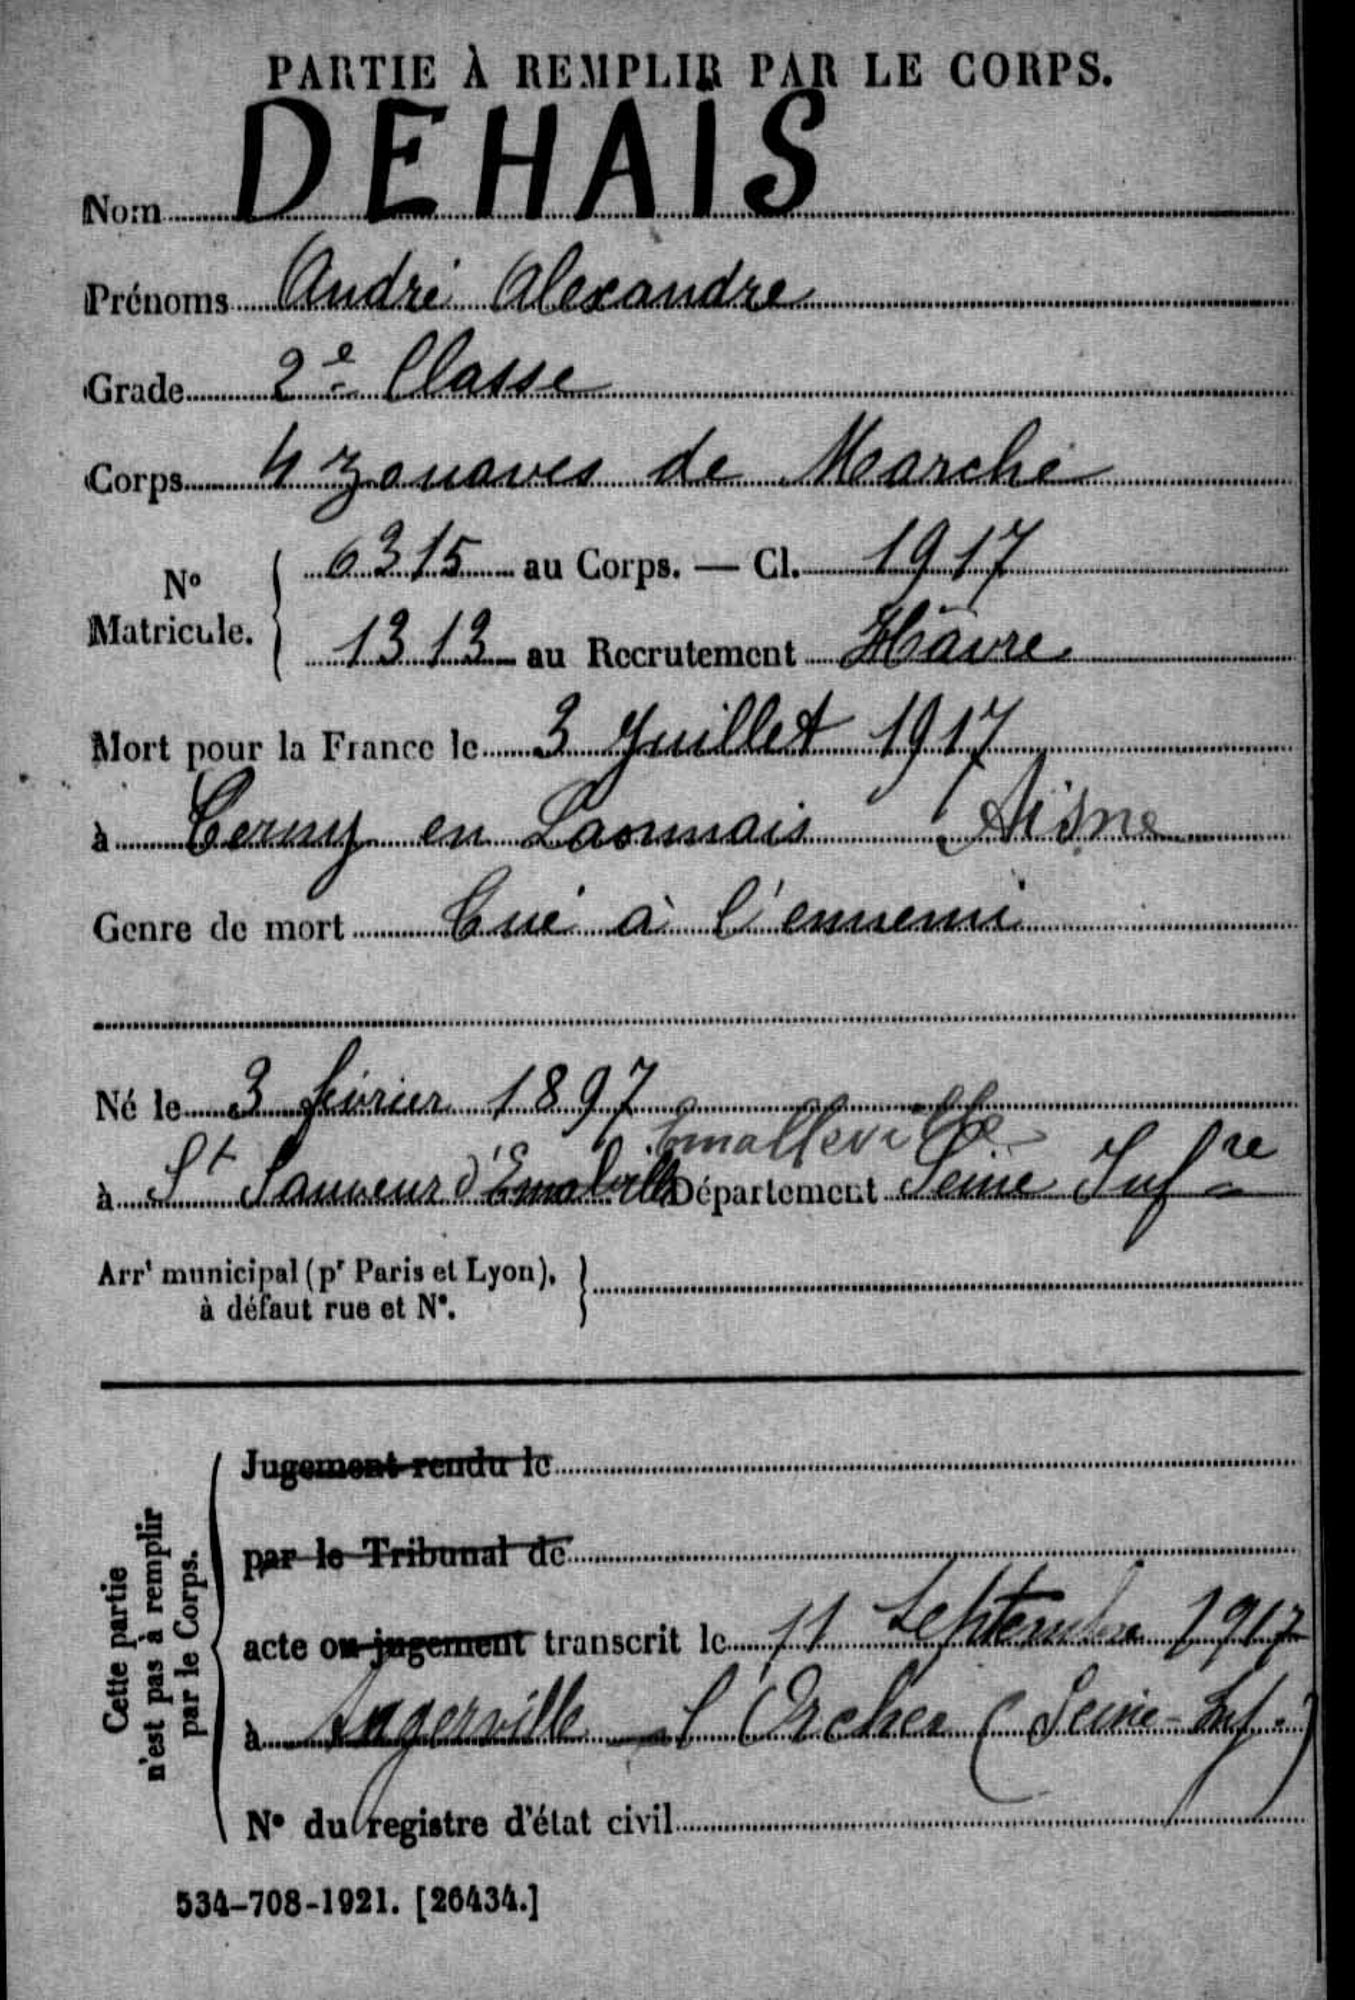 PARTIE À REMPLIR PAR LE CORPS.
Nom DEHAIS
Prénoms André Alexandre
Grade 2e Classe
Corps 4 zouaves de Marche
No Matricule. { 6315 au Corps. — Cl. 1917
1313 au Recrutement Hâvre
Mort pour la France le 3 Juillet 1917
à Cerny en Laonnais Aisne
Genre de mort Tué à l'ennemi
Né le 3 février 1897
Emalleville
à St Sauveur d'Emalville Département Seine Infre
Arrt municipal (pr Paris et Lyon), }
à défaut rue et No.
Cette partie
n'est pas à remplir
par le Corps.
Jugement rendu le
par le Tribunal de
acte ou jugement transcrit le 11 septembre 1917
à Angerville l'Orcher (Seine-Inf.)
No du registre d'état civil
534-708-1921. [26434.]